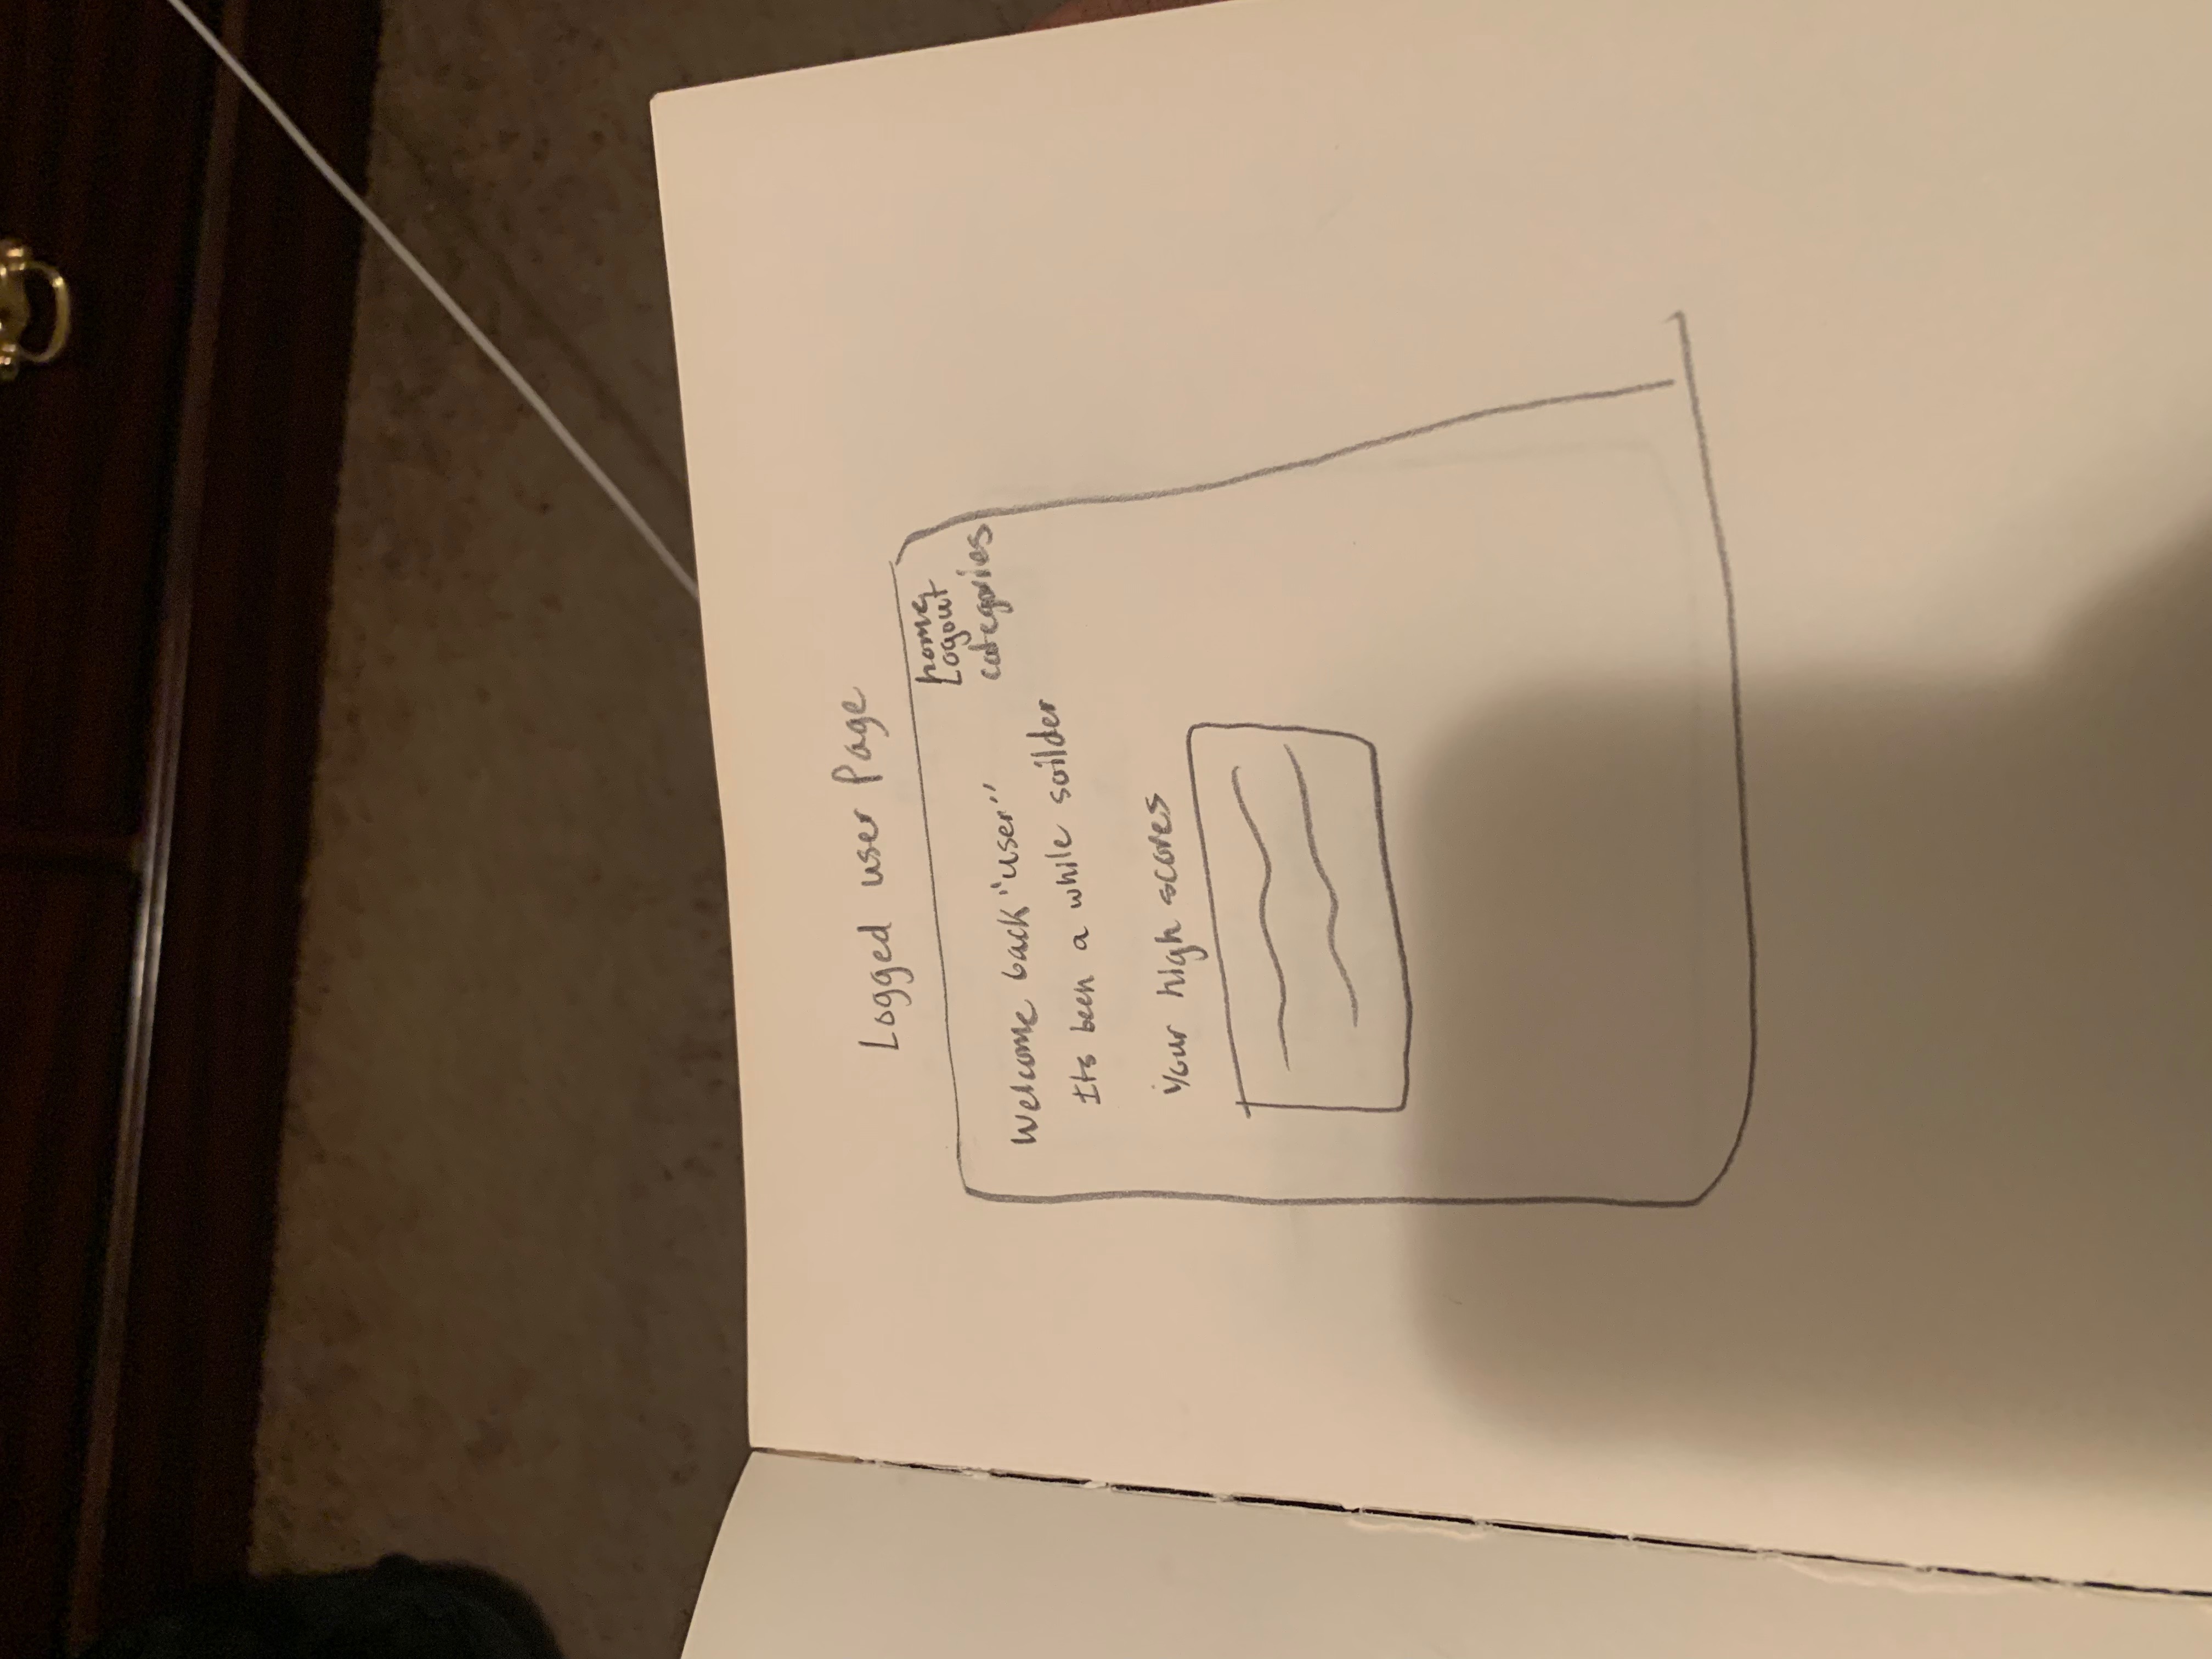 Logged user Page
home
Logout
categories
Welcome back "user"
Its been a while soilder
Your high scores